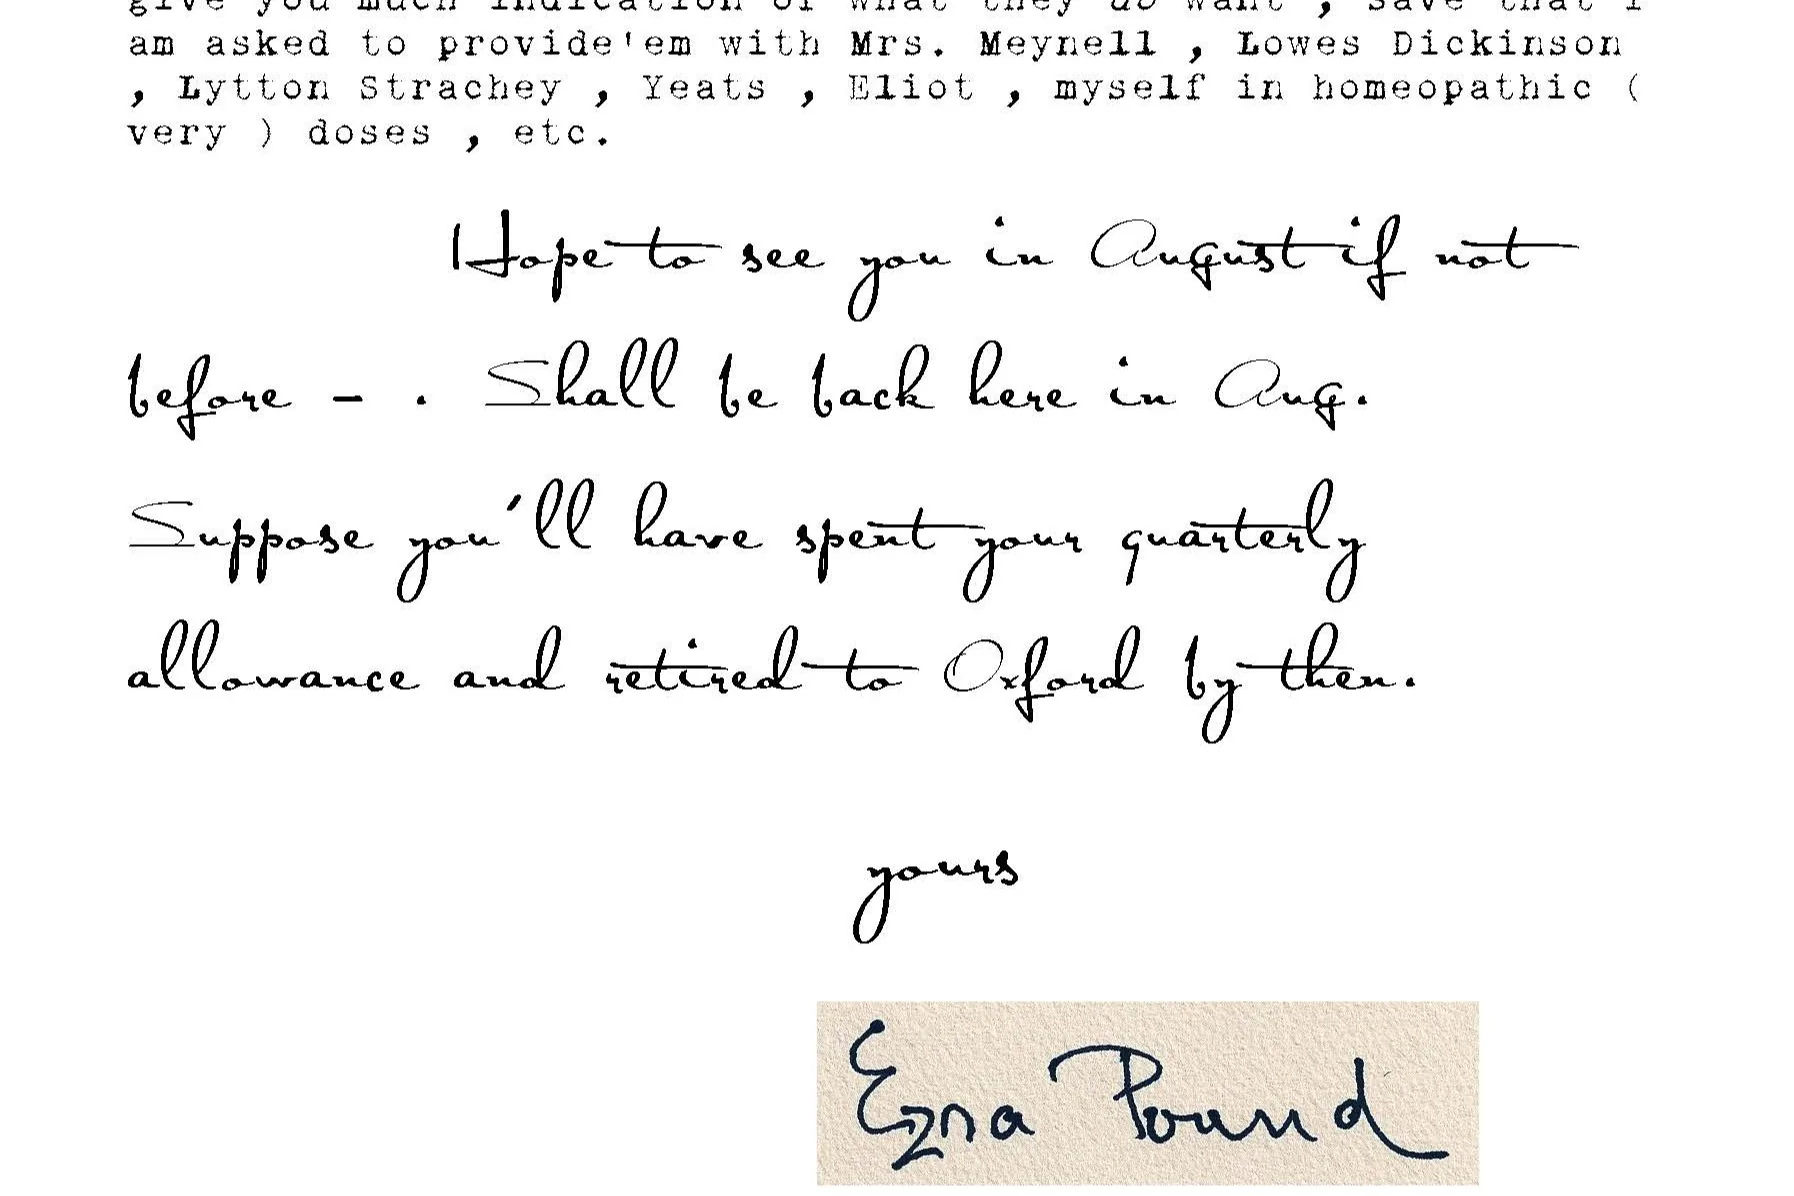 give you much indication of what they do want , save that I
am asked to provide'em with Mrs. Meynell , Lowes Dickinson
, Lytton Strachey , Yeats , Eliot , myself in homeopathic (
very ) doses , etc.
Hope to see you in August if not
before - . Shall be back here in Aug.
Suppose you'll have spent your quarterly
allowance and retired to Oxford by then.
yours
Ezra Pound